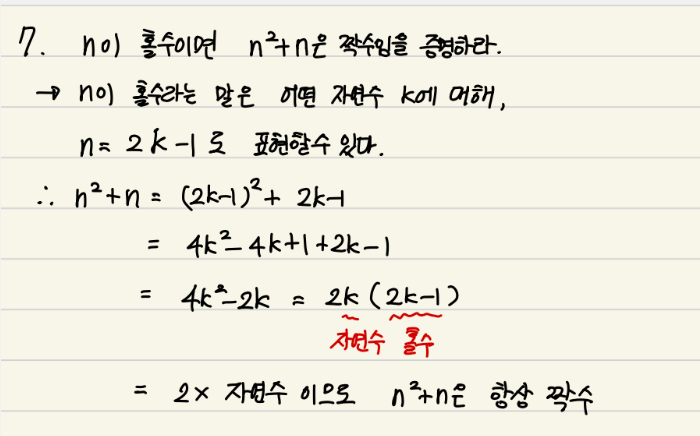 7. n이 홀수이면 n²+n은 짝수임을 증명하라.
→ n이 홀수라는 말은 어떤 자연수 k에 대해,
n = 2k-1 로 표현할수 있다.
∴ n²+n = (2k-1)² + 2k-1
= 4k²-4k+1+2k-1
= 4k²-2k = 2k(2k-1)
자연수 홀수
= 2× 자연수 이므로 n²+n은 항상 짝수